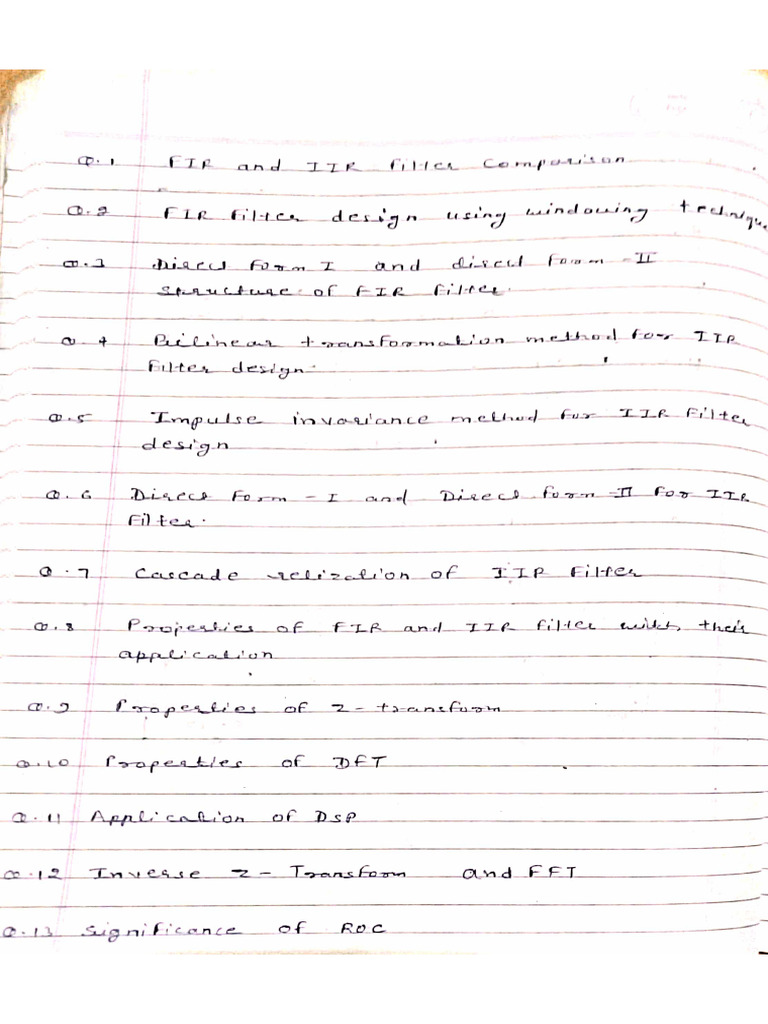 Q.1 FIR and IIR filter Comparison
Q.2 FIR filter design using windowing technique
Q.3 Direct form I and direct form -II
structure of FIR filter.
Q.4 Bilinear transformation method for IIR
filter design.
Q.5 Impulse invariance method for IIR filter
design
Q.6 Direct form -I and Direct form -II for IIR
filter.
Q.7 Cascade relization of IIR filter
Q.8 Properties of FIR and IIR filter with their
application
Q.9 Properties of Z-transform
Q.10 Properties of DFT
Q.11 Application of DSP
Q.12 Inverse Z-Transform and FFT
Q.13 Significance of ROC